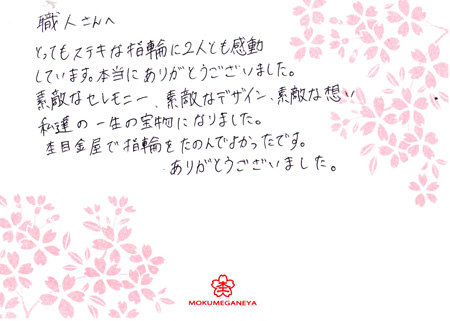 職人さんへ
とってもステキな指輪に2人とも感動
しています。本当にありがとうございました。
素敵なセレモニー、素敵なデザイン、素敵な想い
私達の一生の宝物になりました。
杢目金屋で指輪をたのんでよかったです。
ありがとうございました。
杢
MOKUMEGANEYA